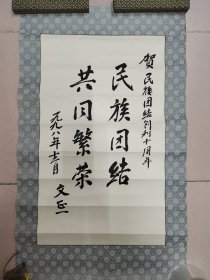 贺民族团结创刊十周年
民族团结
共同繁荣
一九九八年元月 文正一